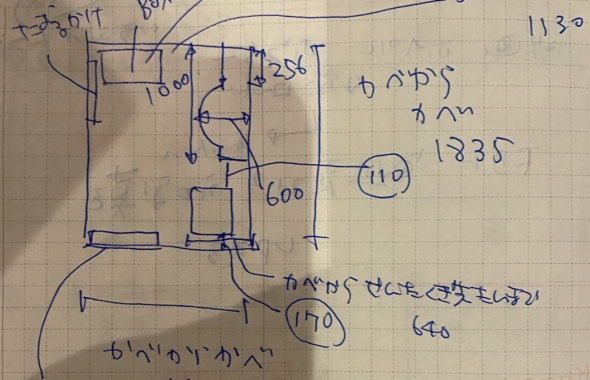 1130
256
1000
かべから
かべ
1835
110
600
かべから せんたくき
170
640
かべからかべ